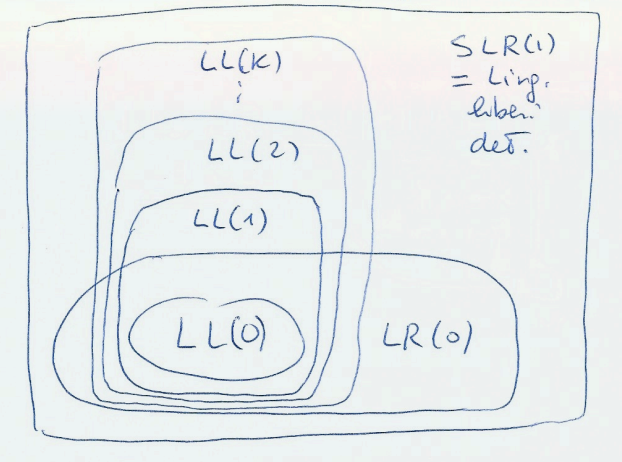 LL(K)
⋮
LL(2)
LL(1)
LL(0)
LR(0)
SLR(1)
= Ling.
liberi
det.